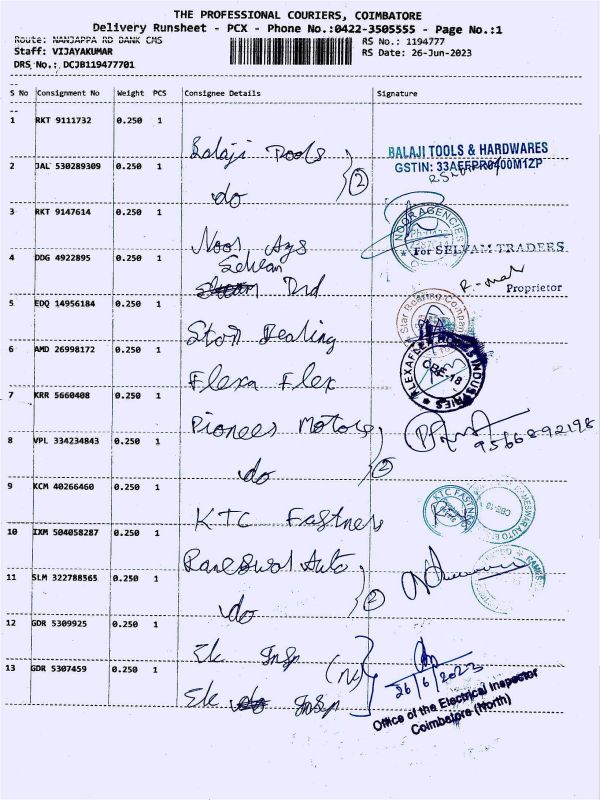 THE PROFESSIONAL COURIERS, COIMBATORE
Delivery Runsheet - PCX - Phone No.:0422-3505555 - Page No.:1
Route: NANJAPPA RD BANK CMS RS No.: 1194777
Staff: VIJAYAKUMAR RS Date: 26-Jun-2023
DRS No.: DCJB119477701
S No Consignment No Weight PCS Consignee Details Signature
1 RKT 9111732 0.250 1
Balaji Tools BALAJI TOOLS & HARDWARES
GSTIN:
2 JAL 530289309 0.250 1
do (2)
3 RKT 9147614 0.250 1
Noor Ags NOOR AGENCIES
For SELVAM TRADERS
4 DDG 4922895 0.250 1
Selvam Trd
Proprietor
5 EDQ 14956184 0.250 1
Star Bearing Star Bearing Company
6 AMD 26998172 0.250 1
Flexa Flex FLEXAFLEX HOSES INDUSTRIES
CBE-18
7 KRR 5660408 0.250 1
Pioneer Motors 9566892198
8 VPL 334234843 0.250 1
do (2)
9 KCM 40266460 0.250 1
KTC Fastners KTC FASTNERS
10 IXM 504058287 0.250 1
Rameswar Auto
11 SLM 322788565 0.250 1
do (2)
12 GDR 5309925 0.250 1
Ele Insp (N) 26/6/2023
13 GDR 5307459 0.250 1
Ele Insp
Office of the Electrical Inspector
Coimbatore (North)